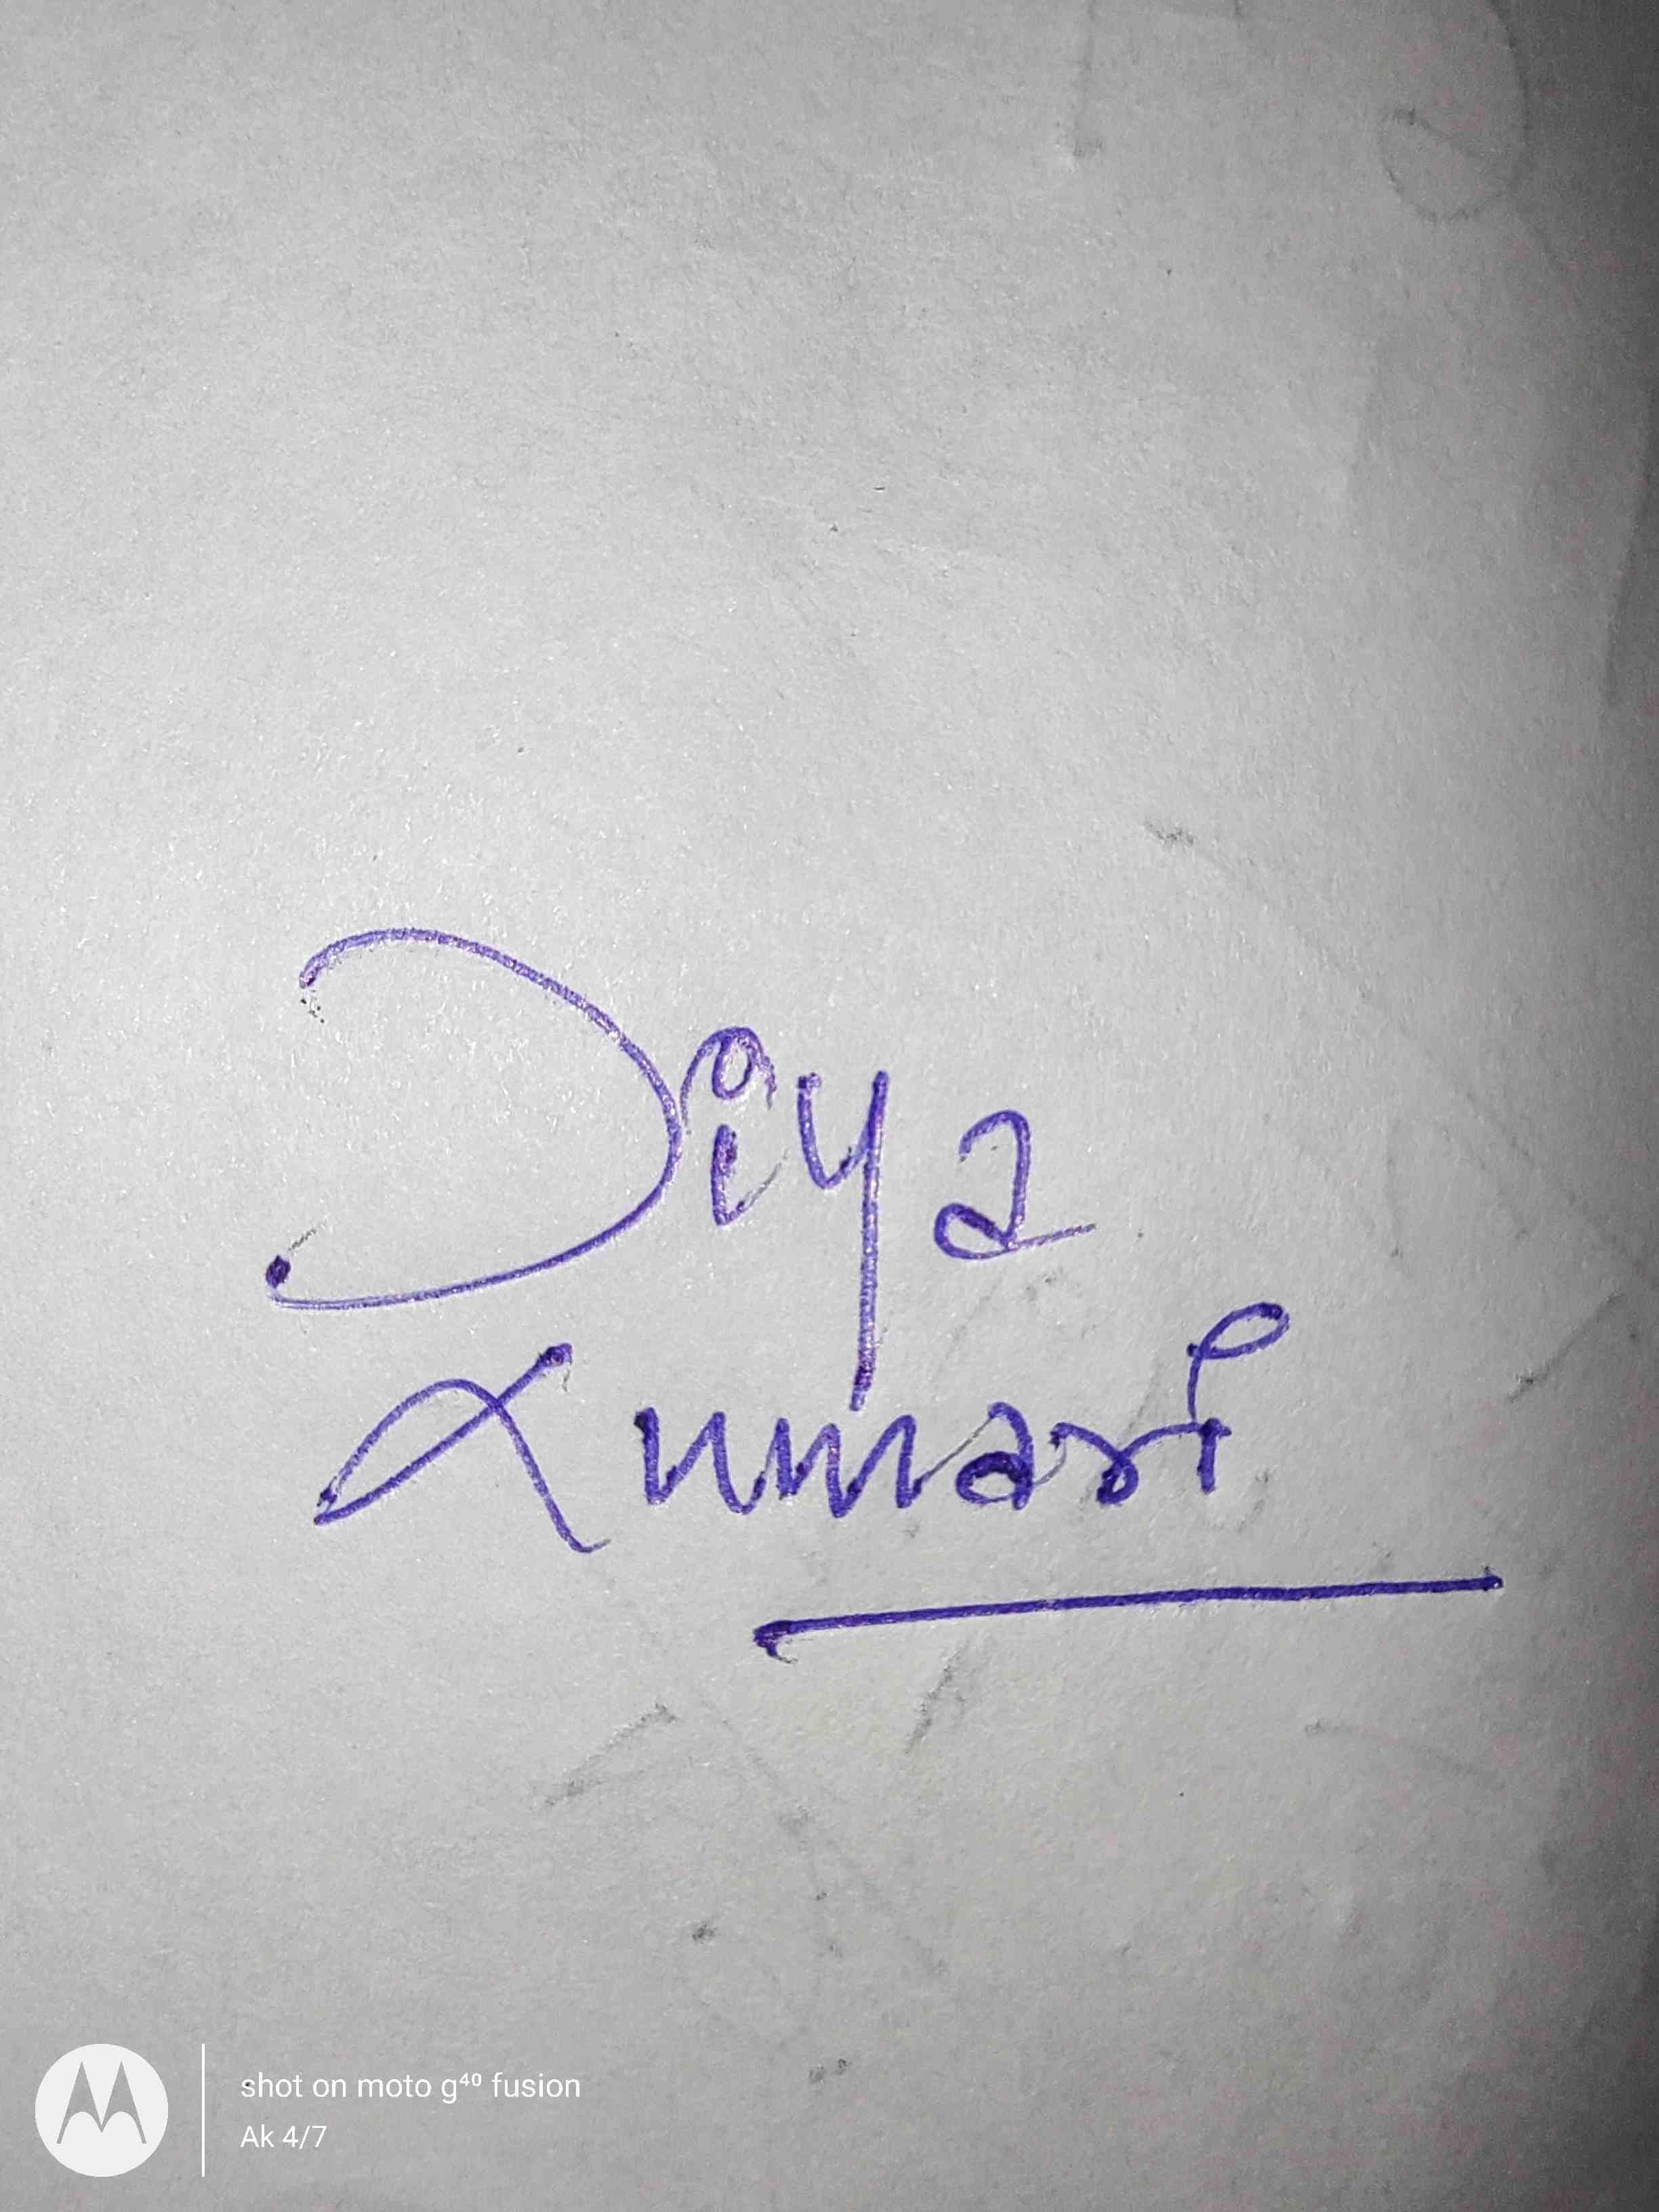 Diya
Kumari
shot on moto g⁴⁰ fusion
Ak 4/7